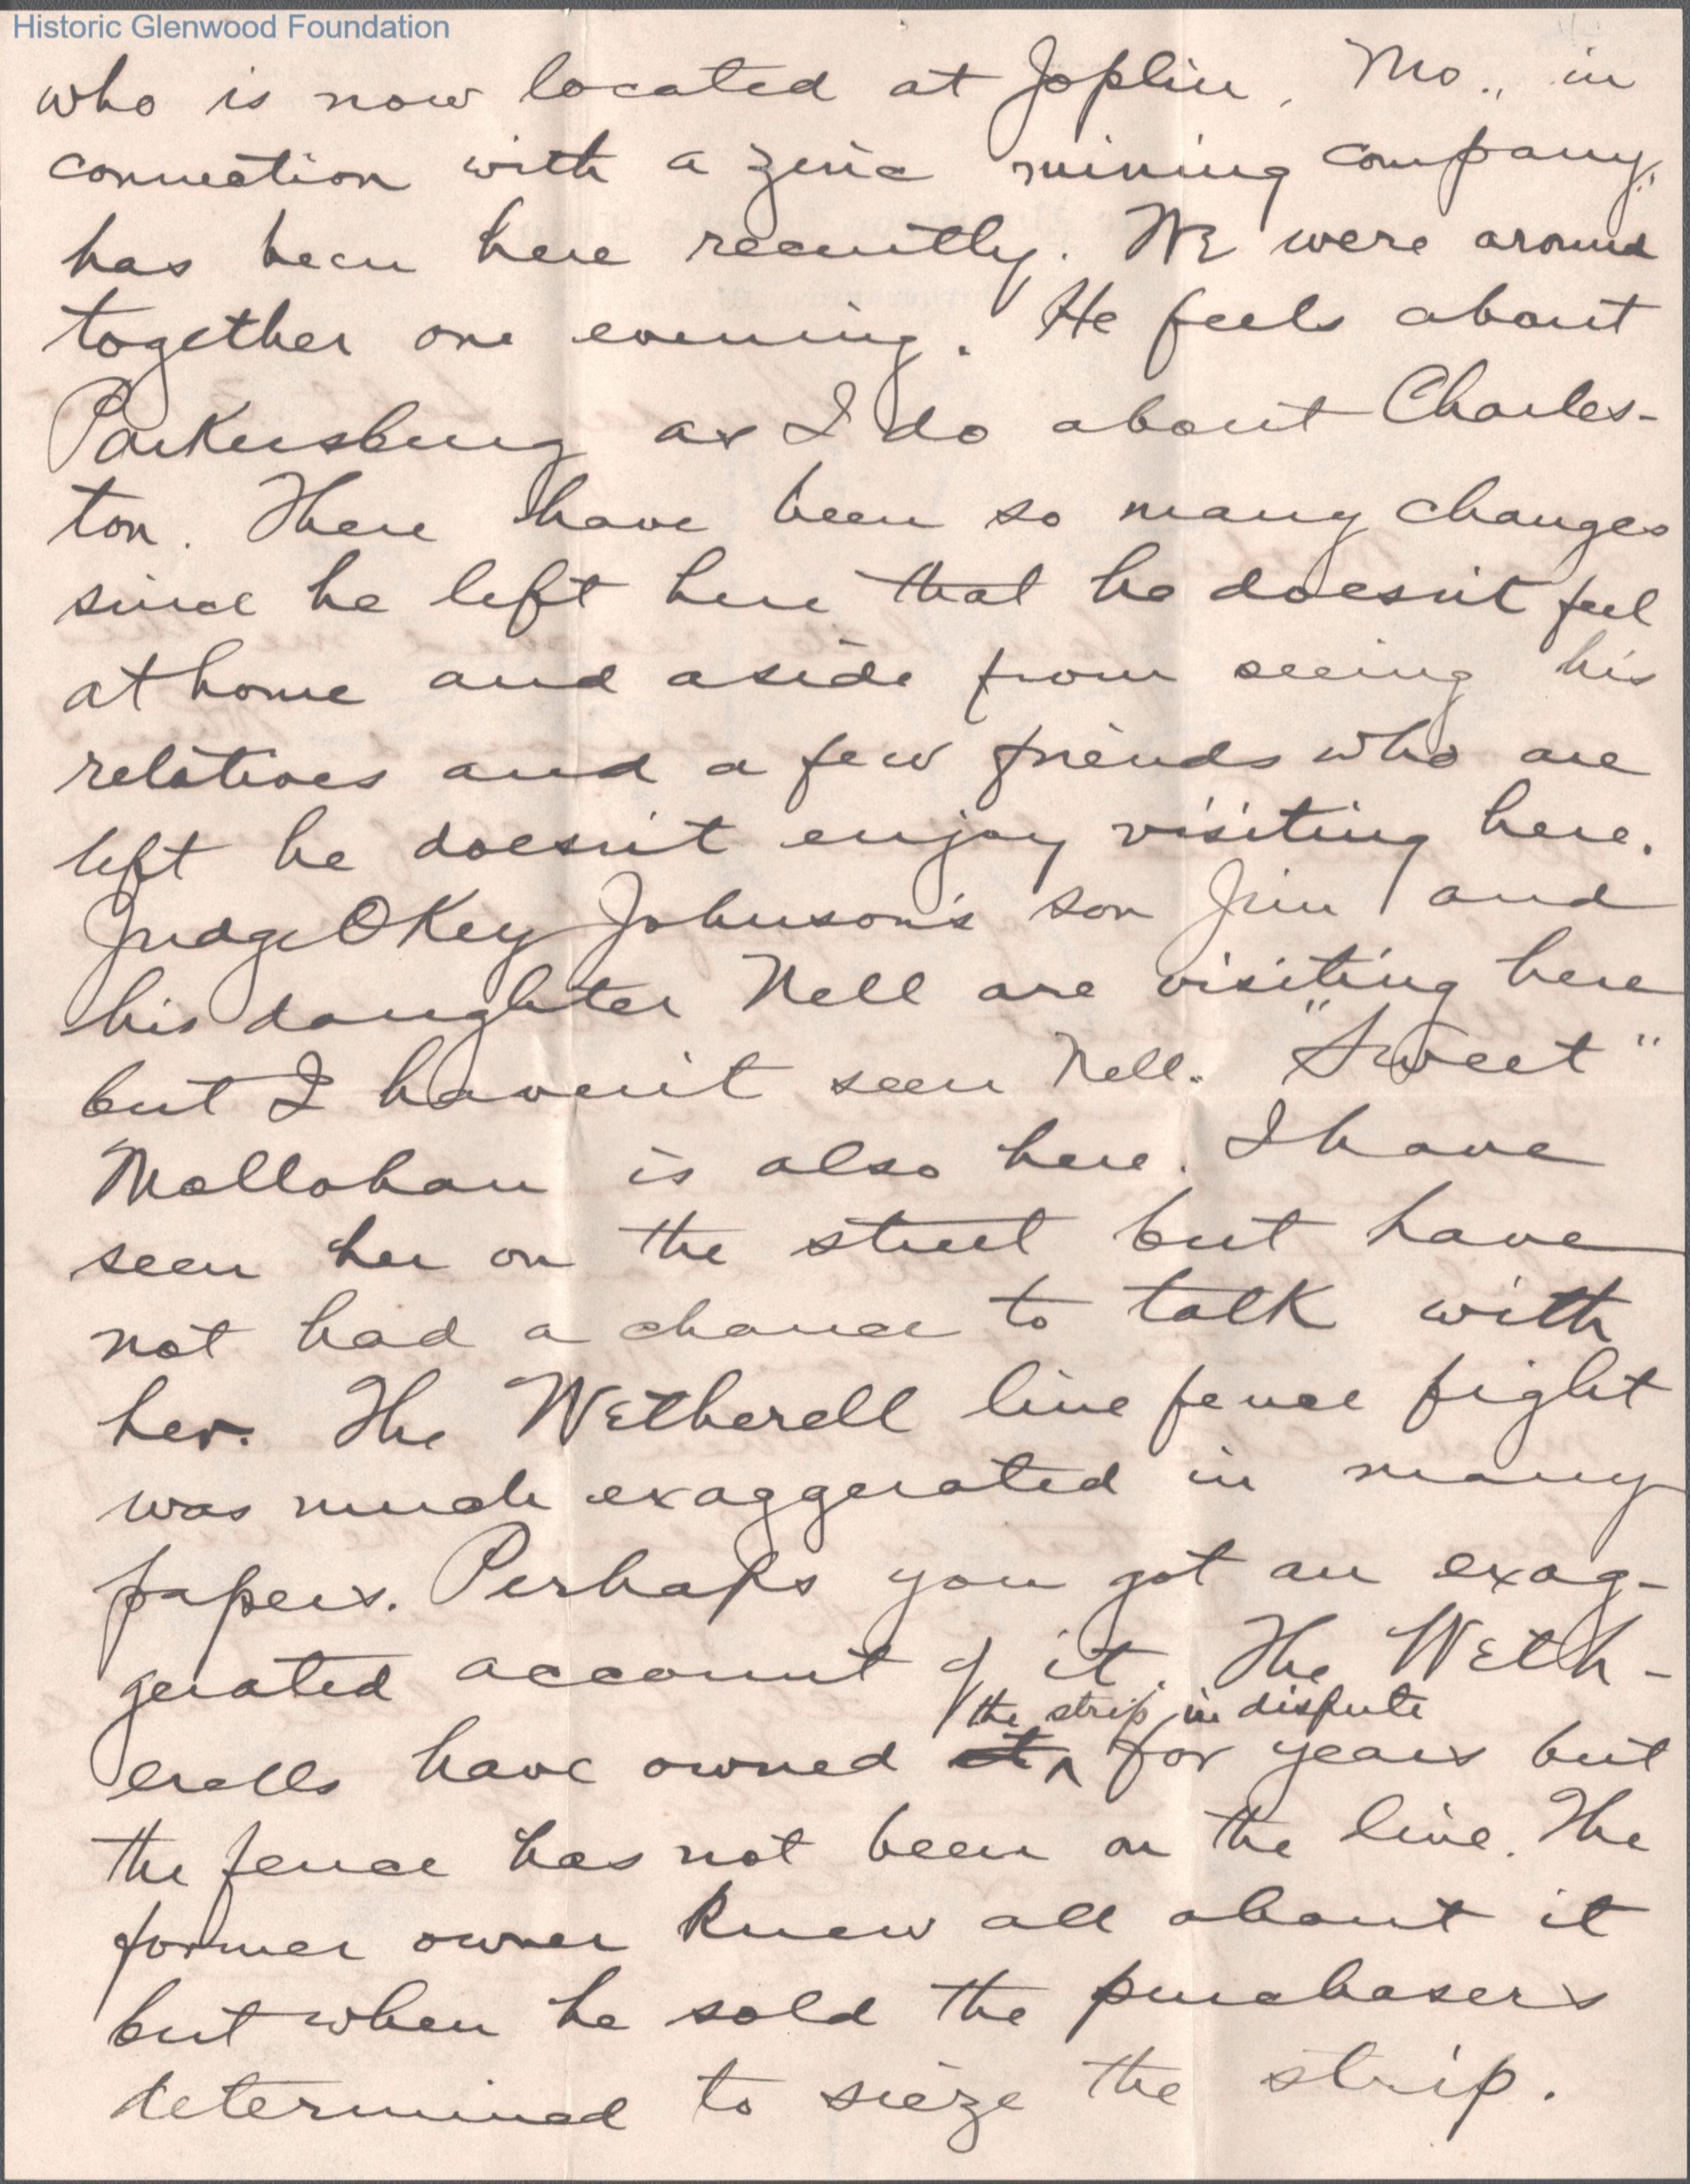 Historic Glenwood Foundation
who is now located at Joplin, Mo., in
connection with a zinc mining company,
has been here recently. We were around
together one evening. He feels about
Parkersburg as I do about Charles-
ton. There have been so many changes
since he left here that he doesn't feel
at home and aside from seeing his
relatives and a few friends who are
left he doesn't enjoy visiting here.
Judge OKey Johnson's son Jim and
his daughter Nell are visiting here
but I haven't seen Nell. "Sweet"
Mollohan is also here. I have
seen her on the street but have
not had a chance to talk with
her. The Wetherell line fence fight
was much exaggerated in many
papers. Perhaps you got an exag-
gerated account of it. The Weth-
the strip in dispute
erells have owned it ^ for years but
the fence has not been on the line. The
former owner knew all about it
but when he sold the purchasers
determined to sieze the strip.